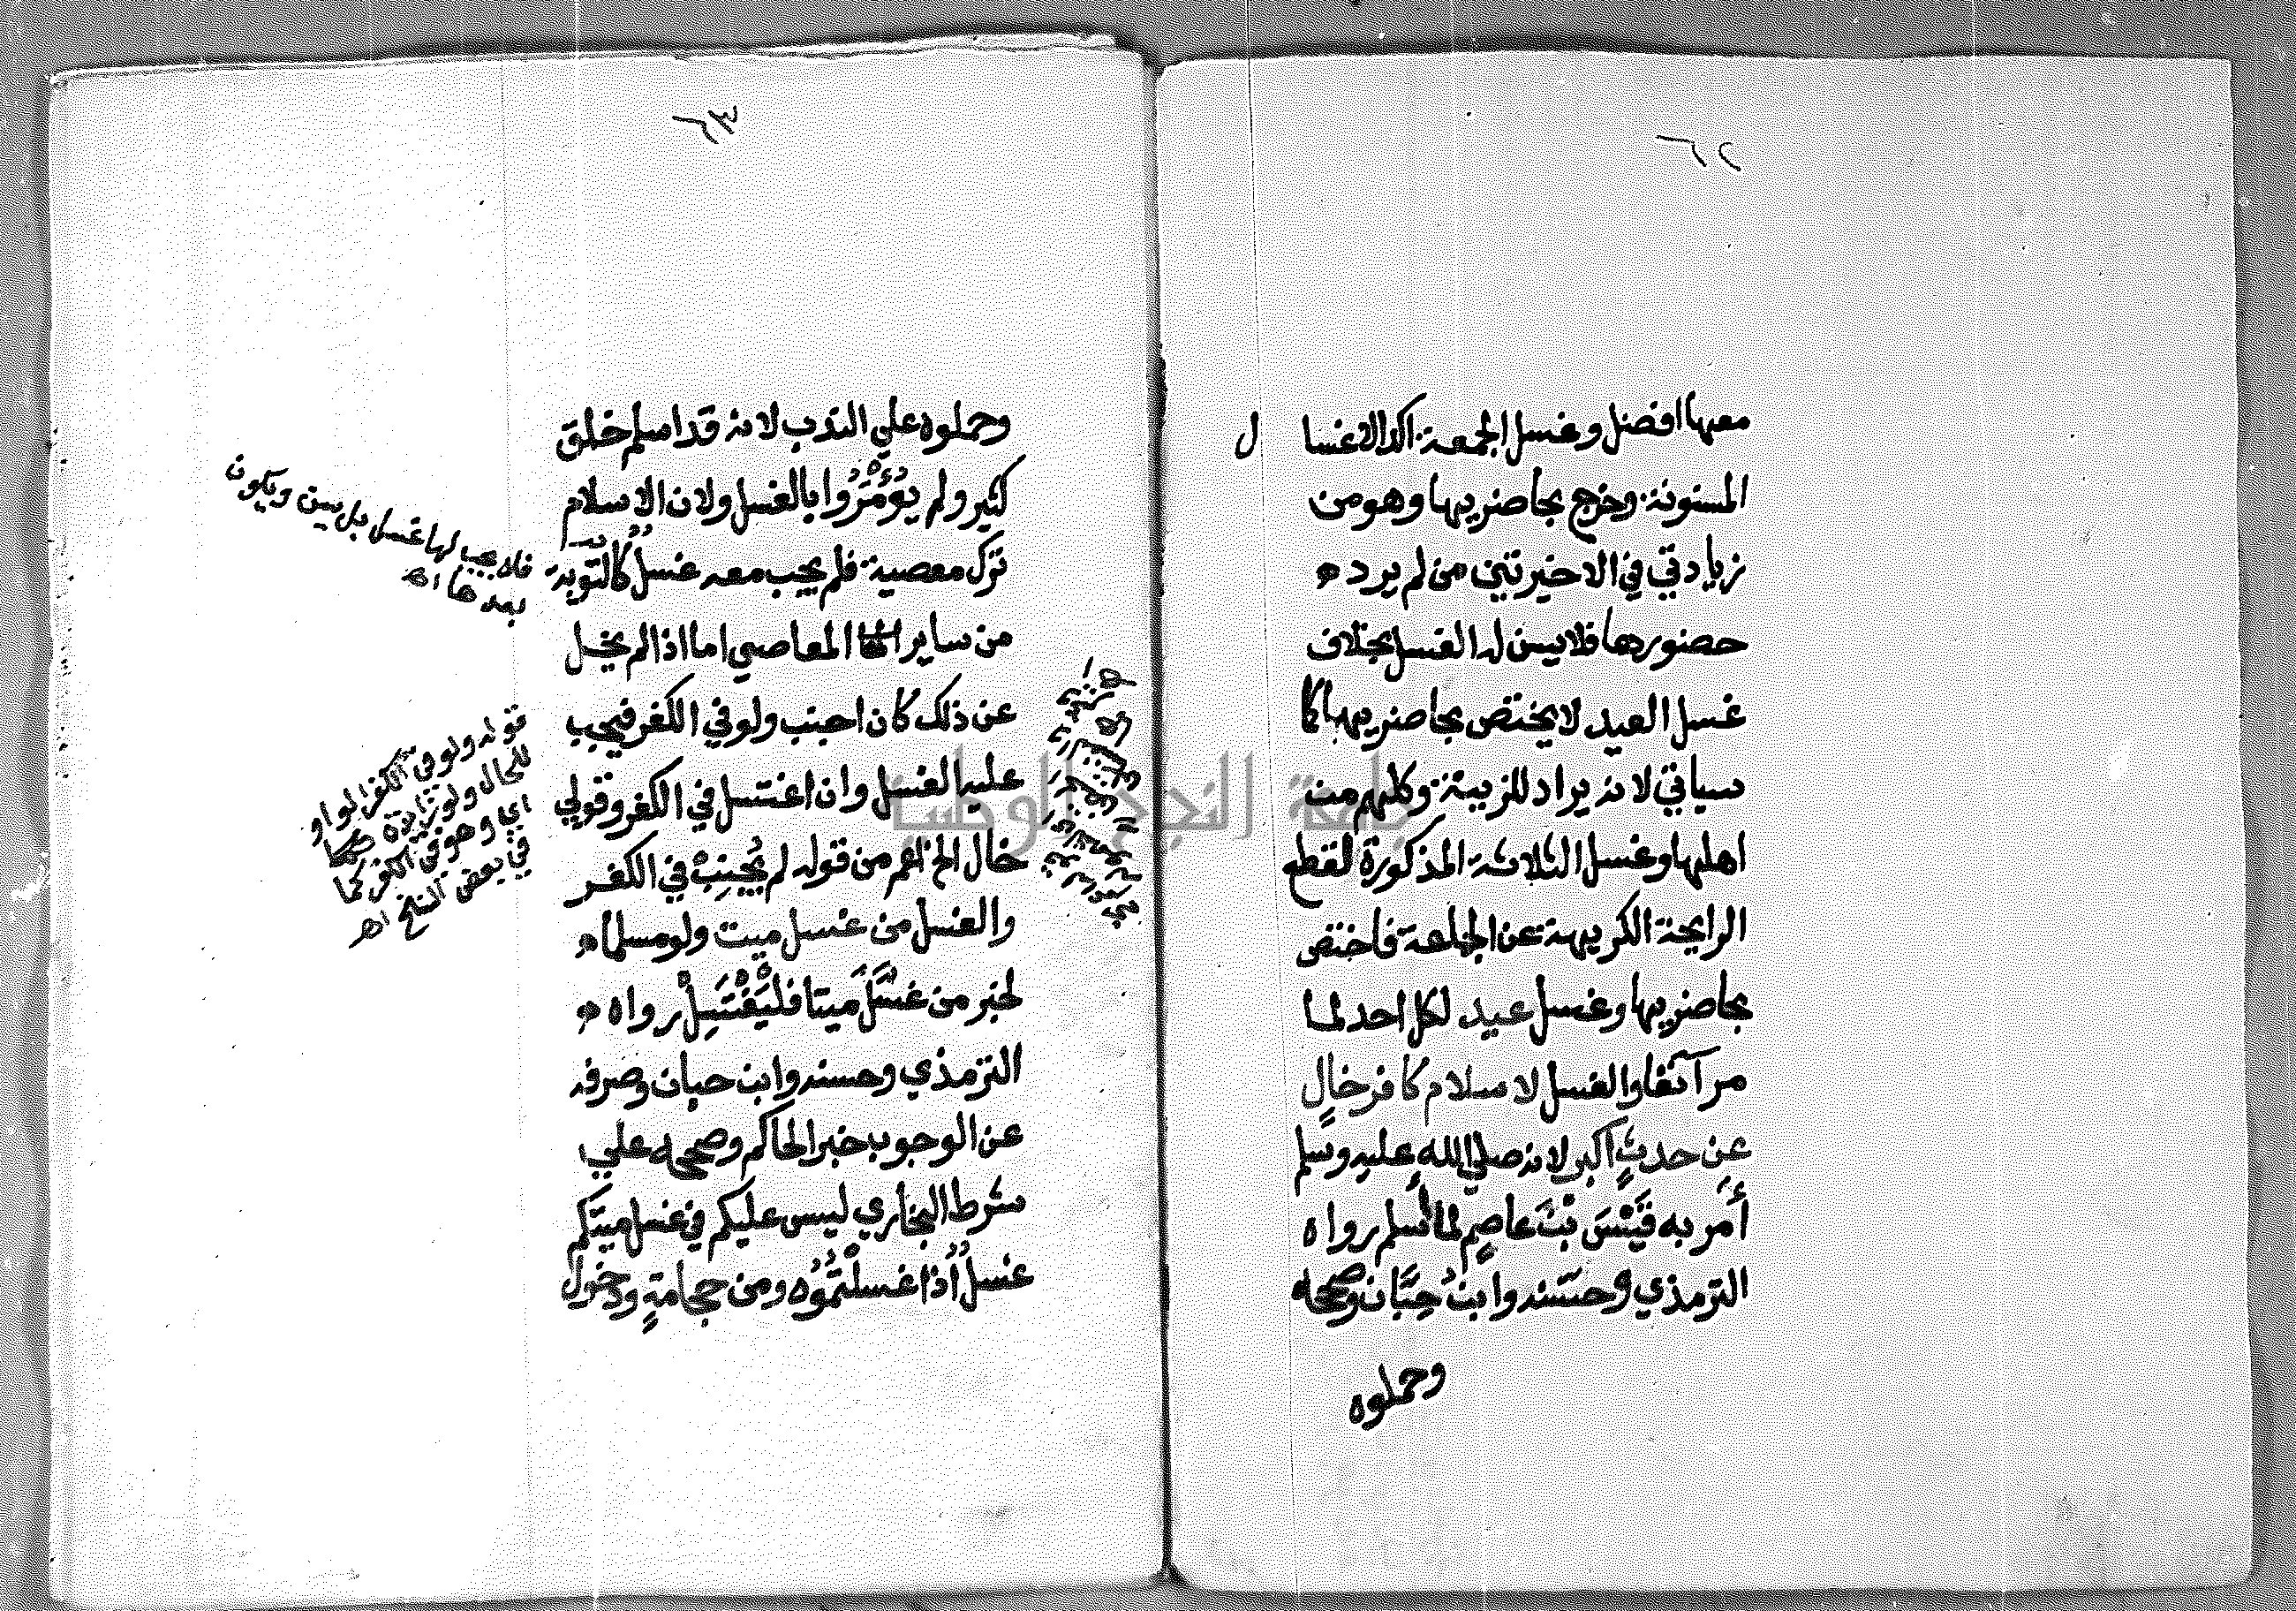 ٦٢
معها افضل وغسل الجمعة اكد الاغسا ل
المسنونة وخرج بحاضريها وهو من
زيادتي في الاخيرتين من لم يرد
حضورها فلا يسن له الغسل بخلاف
غسل العيد لا يختص بحاضريها كما
سياتي لانه يراد للزينة وكلهم من
اهلها وغسل الثلاثة المذكورة لقطع
الرايحة الكريهة عن الجماعة فاختص
بحاضريها وغسل عيد لكل احد لما
مر آنفا والغسل لاسلام كافر خالٍ
عن حدثٍ اكبر لانه صلي الله عليه وسلم
أمر به قَيْسَ بْنَ عاصمٍ لما أسلم رواه
الترمذي وحسَّنه وابن حِبَّان وصححاه
وحملوه
٦٣
وحملوه علي الندب لانه قد اسلم خلق
كثير ولم يُؤْمَرُوا بالغسل ولان الاسلام
ترك معصية فلم يجب معه غسلٌ كالتوبة
من ساير المعاصي اما اذا لم يخل
عن ذلك كان اجنب ولو في الكفر فيجب
عليه الغسل وان اغتسل في الكفر وقولي
خال الخ اعم من قوله لم يُجْنِبْ في الكفر
والغسل من غسل ميت ولو مسلما
لخبر من غسَّلَ ميتا فلْيَغْتَسِلْ رواه
الترمذي وحسنه وابن حبان وصرفه
عن الوجوب خبر الحاكم وصححه علي
شرط البخاري ليس عليكم في غسل ميتكم
غسلٌ اذا غسلْتُمُوُه ومن حجامةٍ ودخول
فلا يجب لها غسل بل يسن ويكون
بعدها اه
قوله ولو في الكفر الواو
للحال ولو زايدة
اي وهو في الكفر كما
في بعض النسخ اه
جامعة النجاح الوطنية